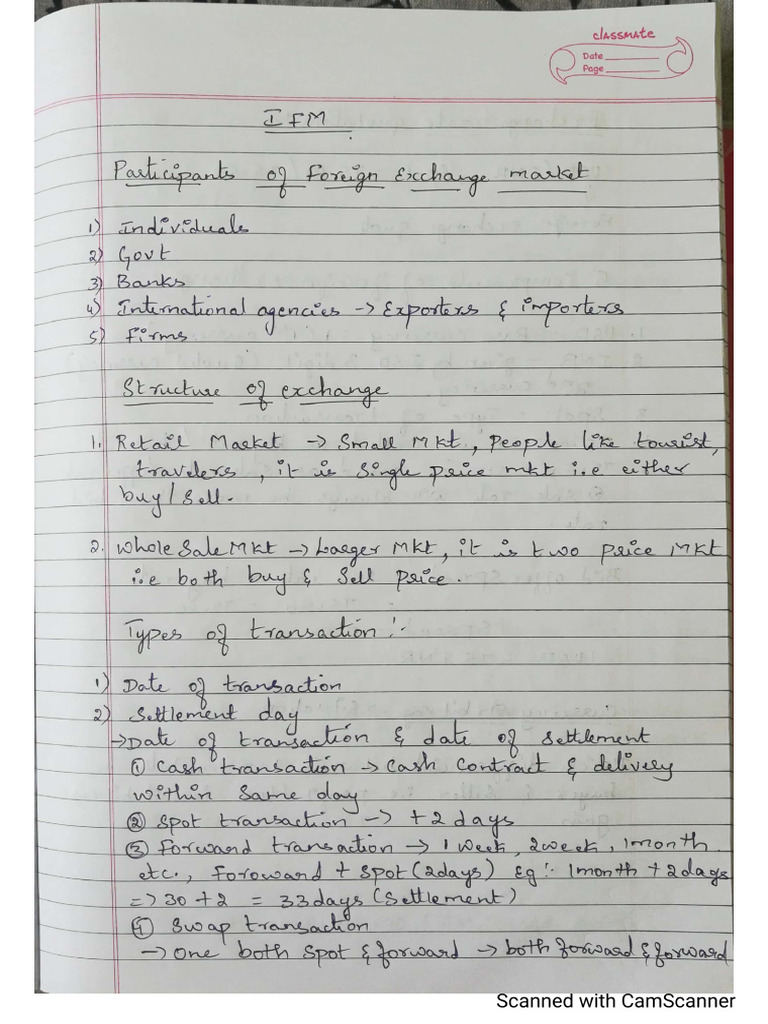 classmate
Date
Page
IFM
Participants of Foreign Exchange market
1) Individuals
2) Govt
3) Banks
4) International agencies → Exporters & importers
5) Firms
Structure of exchange
1. Retail Market → Small Mkt, People like tourist,
travelers, it is Single price mkt i.e either
buy/Sell.
2. Whole Sale Mkt → Larger Mkt, it is two price Mkt
i.e both buy & Sell price.
Types of transaction:-
1) Date of transaction
2) Settlement day
→Date of transaction & date of settlement
① Cash transaction → Cash Contract & delivery
within Same day
② Spot transaction → +2 days
③ Forward transaction → 1 week, 2week, 1month
etc., Foroward + Spot (2days) Eg:- 1month +2dags
=> 30+2 = 33days (Settlement)
④ Swap transaction
→ One both Spot & forward → both forward & forward
Scanned with CamScanner